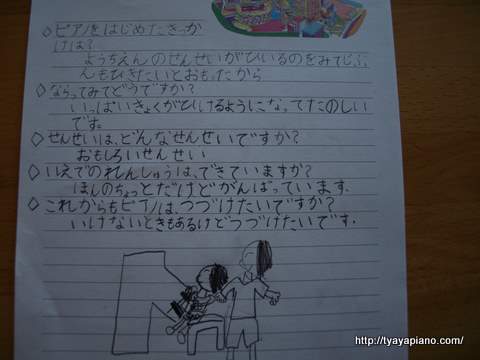 ◇ピアノをはじめたきっか
けは?
ようちえんのせんせいがひいるのをみてじぶ
んもひきたいとおもったから
◇ならってみてどうですか?
いっぱいきょくがひけるようになってたのしい
です。
◇せんせいは、どんなせんせいですか?
おもしろいせんせい
◇いえでのれんしゅうは、できていますか?
ほんのちょっとだけどがんばっています.
◇これからもピアノは、つづけたいですか?
いけないときもあるけどつづけたいです.
http://tyayapiano.com/